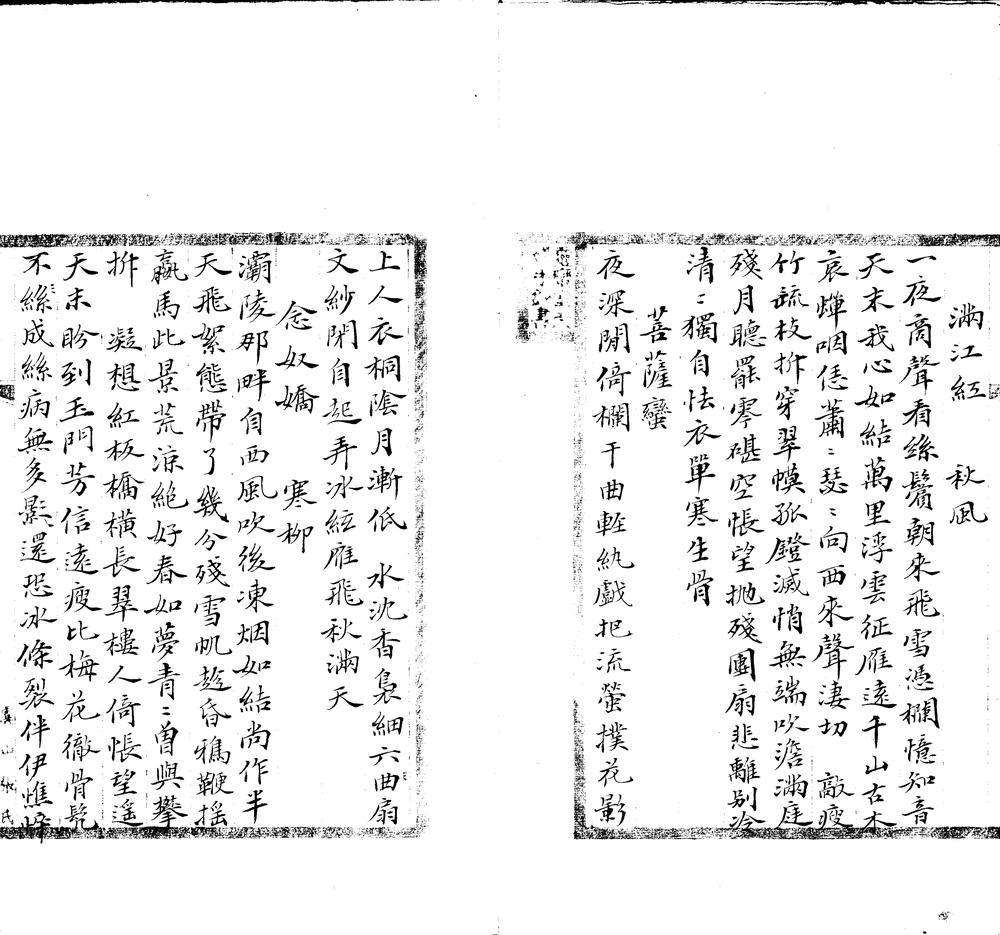 滿江紅　秋風
一夜商聲看絲鬢朝來飛雪憑欄憶知音
天末我心如結萬里浮雲征雁遠千山古木
哀蟬咽恁蕭〻瑟〻向西來聲淒切　敲瘦
竹疏枝拆穿翠幙孤鐙滅悄無端吹澹滿庭
殘月聽罷零碪空悵望拋殘團扇悲離别冷
清〻獨自怯衣單寒生骨
菩薩蠻
夜深閒倚欄干曲輕紈戲把流螢撲花影
上人衣桐陰月漸低　水沈香裊細六曲扇
文紗閉自起弄冰絃雁飛秋滿天
念奴嬌　寒柳
灞陵那畔自西風吹後凍烟如結尚作半
天飛絮態帶了幾分殘雪帆趁昏鴉鞭搖
羸馬此景荒涼絕好春如夢青〻曾與攀
拆　凝想紅板橋橫長翠樓人倚悵望遙
天末盼到玉門芳信遠瘦比梅花徹骨髡
不絲成絲病無多影還恐冰條裂伴伊憔悴
張氏